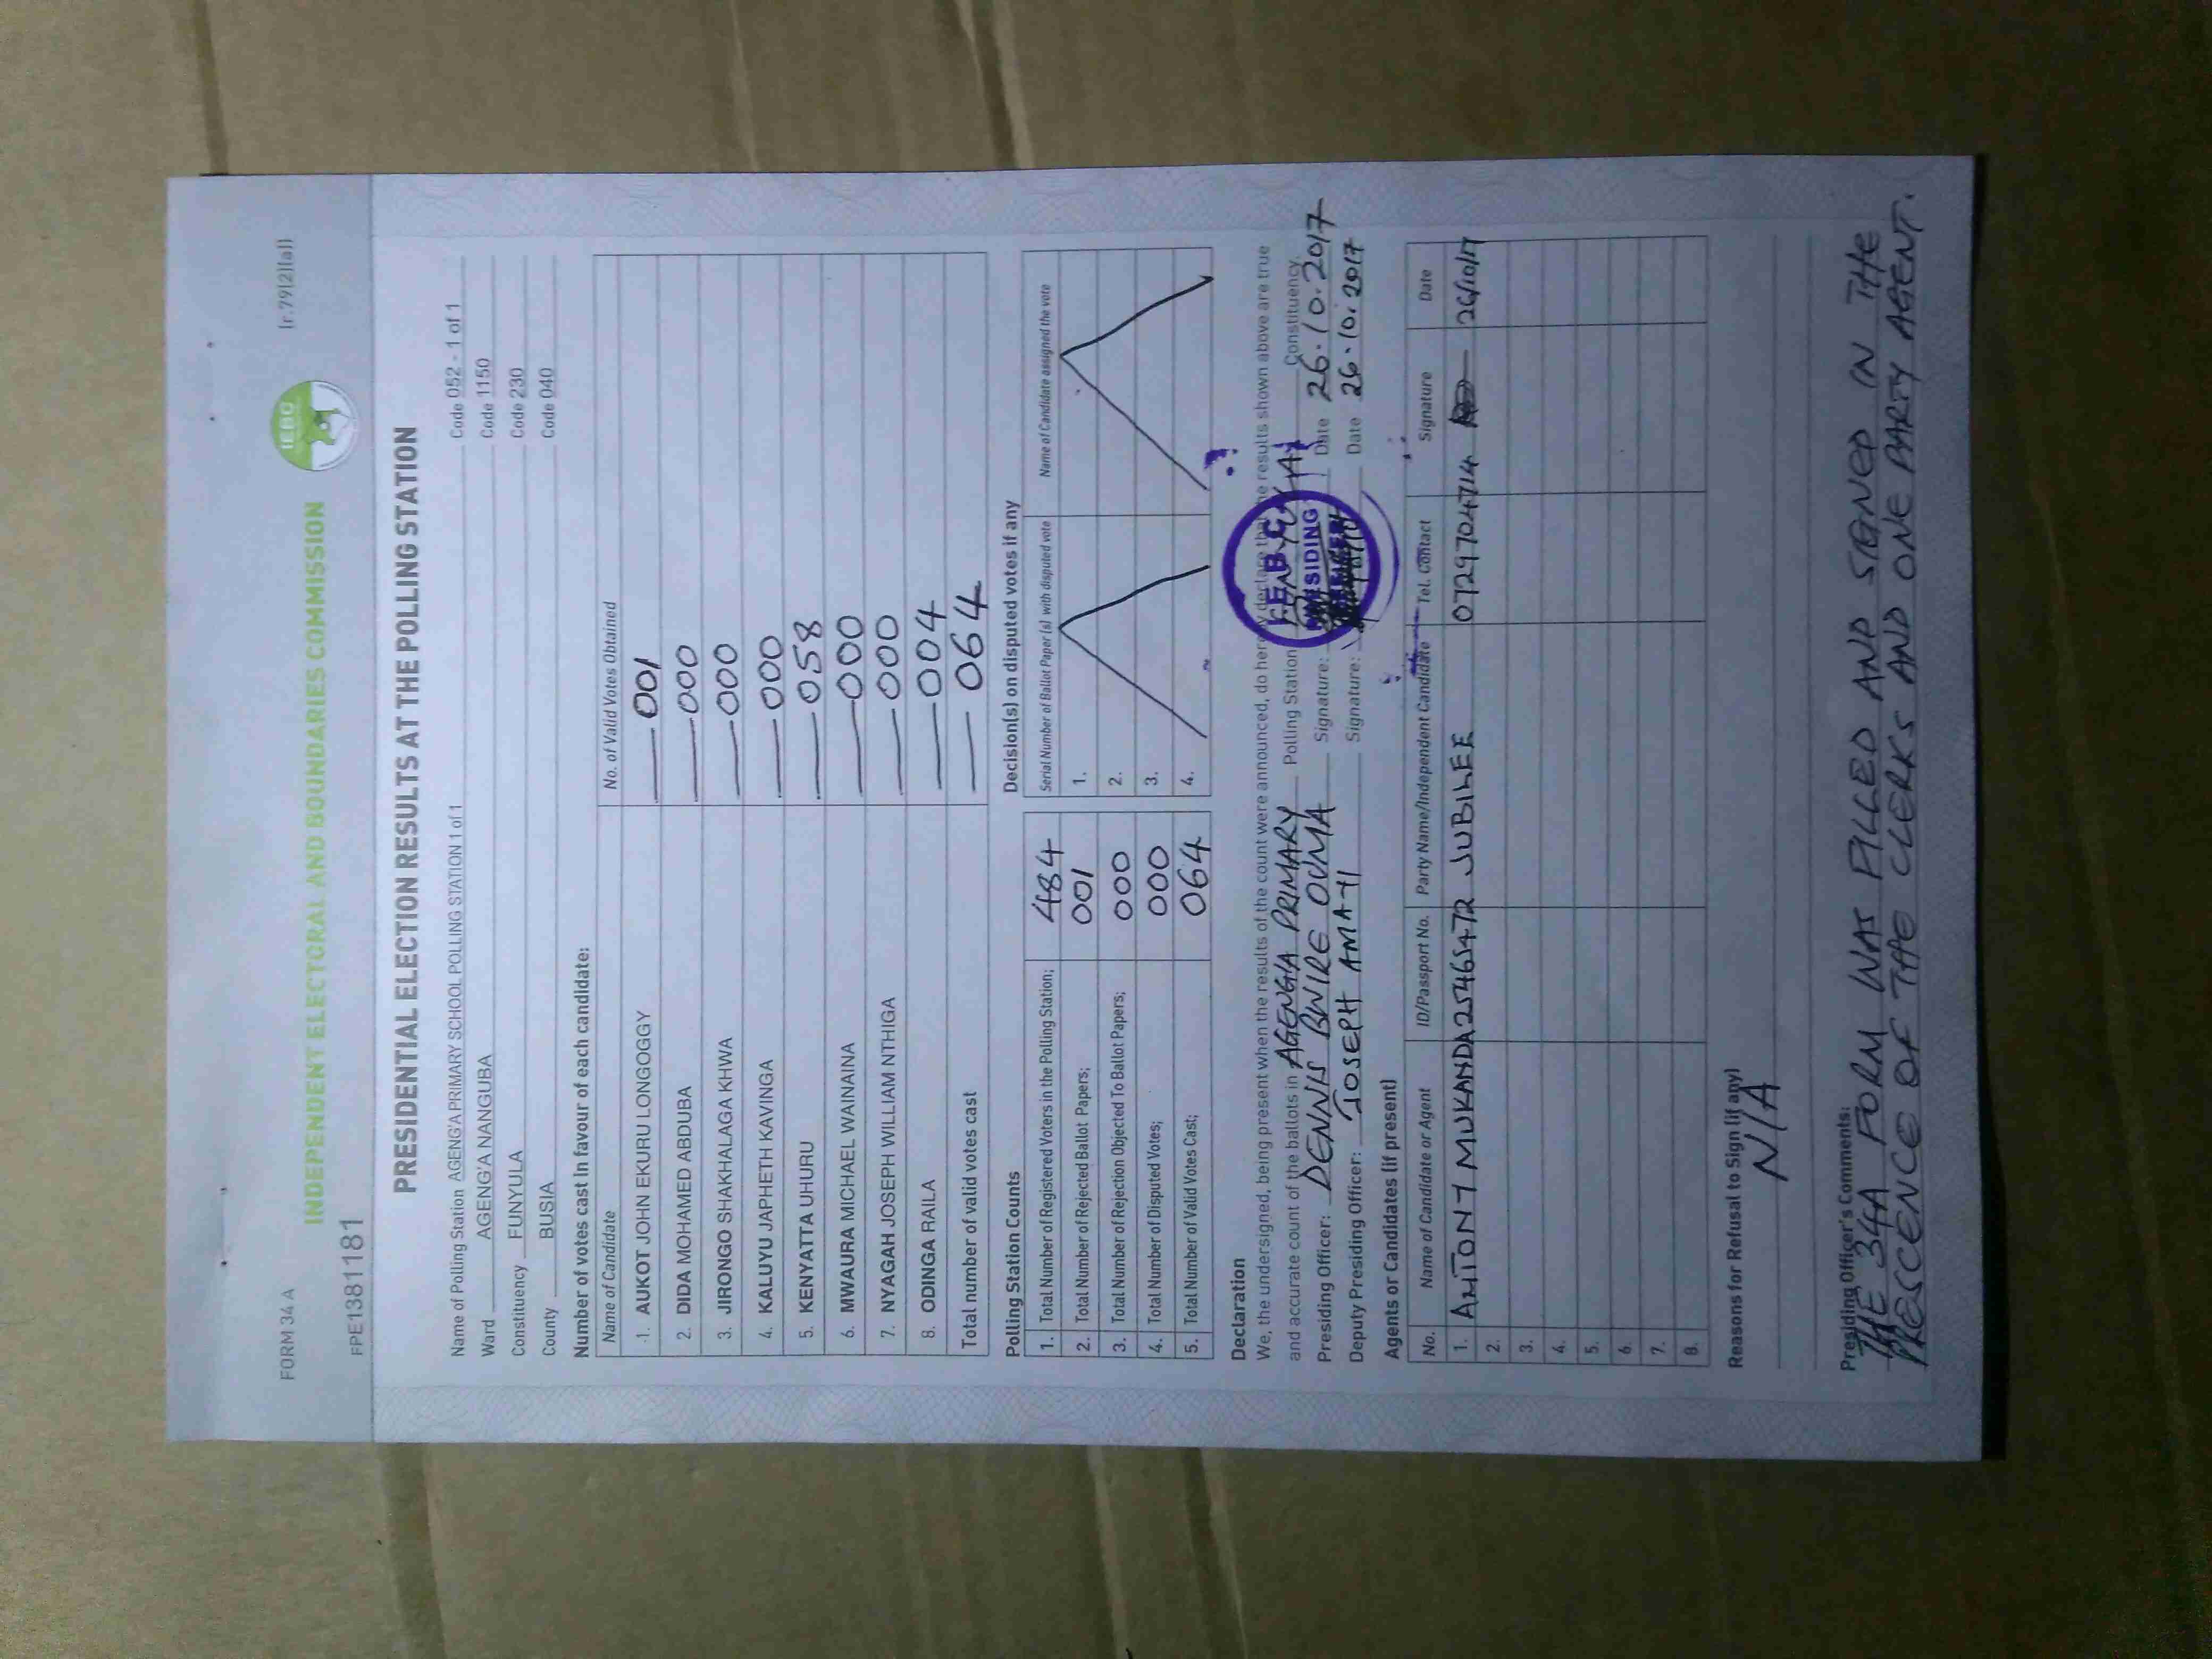 FORM 34 A
[r.79(2)(a)]
IEBC
INDEPENDENT ELECTORAL AND BOUNDARIES COMMISSION
FPE1381181
PRESIDENTIAL ELECTION RESULTS AT THE POLLING STATION
Name of Polling Station AGENG'A PRIMARY SCHOOL POLLING STATION 1 of 1 Code 052 - 1 of 1
Ward AGENG'A NANGUBA Code 1150
Constituency FUNYULA Code 230
County BUSIA Code 040
Number of votes cast in favour of each candidate:
Name of Candidate No. of Valid Votes Obtained
1. AUKOT JOHN EKURU LONGOGGY 001
2. DIDA MOHAMED ABDUBA 000
3. JIRONGO SHAKHALAGA KHWA 000
4. KALUYU JAPHETH KAVINGA 000
5. KENYATTA UHURU 058
6. MWAURA MICHAEL WAINAINA 000
7. NYAGAH JOSEPH WILLIAM NTHIGA 000
8. ODINGA RAILA 004
Total number of valid votes cast 064
Polling Station Counts
1. Total Number of Registered Voters in the Polling Station; 484
2. Total Number of Rejected Ballot Papers; 001
3. Total Number of Rejection Objected To Ballot Papers; 000
4. Total Number of Disputed Votes; 000
5. Total Number of Valid Votes Cast; 064
Decision(s) on disputed votes if any
Serial Number of Ballot Paper (s) with disputed vote Name of Candidate assigned the vote
1.
2.
3.
4.
Declaration
We, the undersigned, being present when the results of the count were announced, do hereby declare that the results shown above are true
and accurate count of the ballots in AGENGA PRIMARY Polling Station Constituency.
Presiding Officer: DENNIS BWIRE OUMA Signature: Date 26.10.2017
Deputy Presiding Officer: JOSEPH AMATI Signature: Date 26.10.2017
I.E.B.C
PRESIDING
OFFICER
Agents or Candidates (if present)
No. Name of Candidate or Agent ID/Passport No. Party Name/Independent Candidate Tel. Contact Signature Date
1. ANTONY MUKANDA 25465472 JUBILEE 0729704714 26/10/17
2.
3.
4.
5.
6.
7.
8.
Reasons for Refusal to Sign (if any)
N/A
Presiding Officer's Comments:
THE 34A FORM WAS FILLED AND SIGNED IN THE
PRESCENCE OF THE CLERKS AND ONE PARTY AGENT.